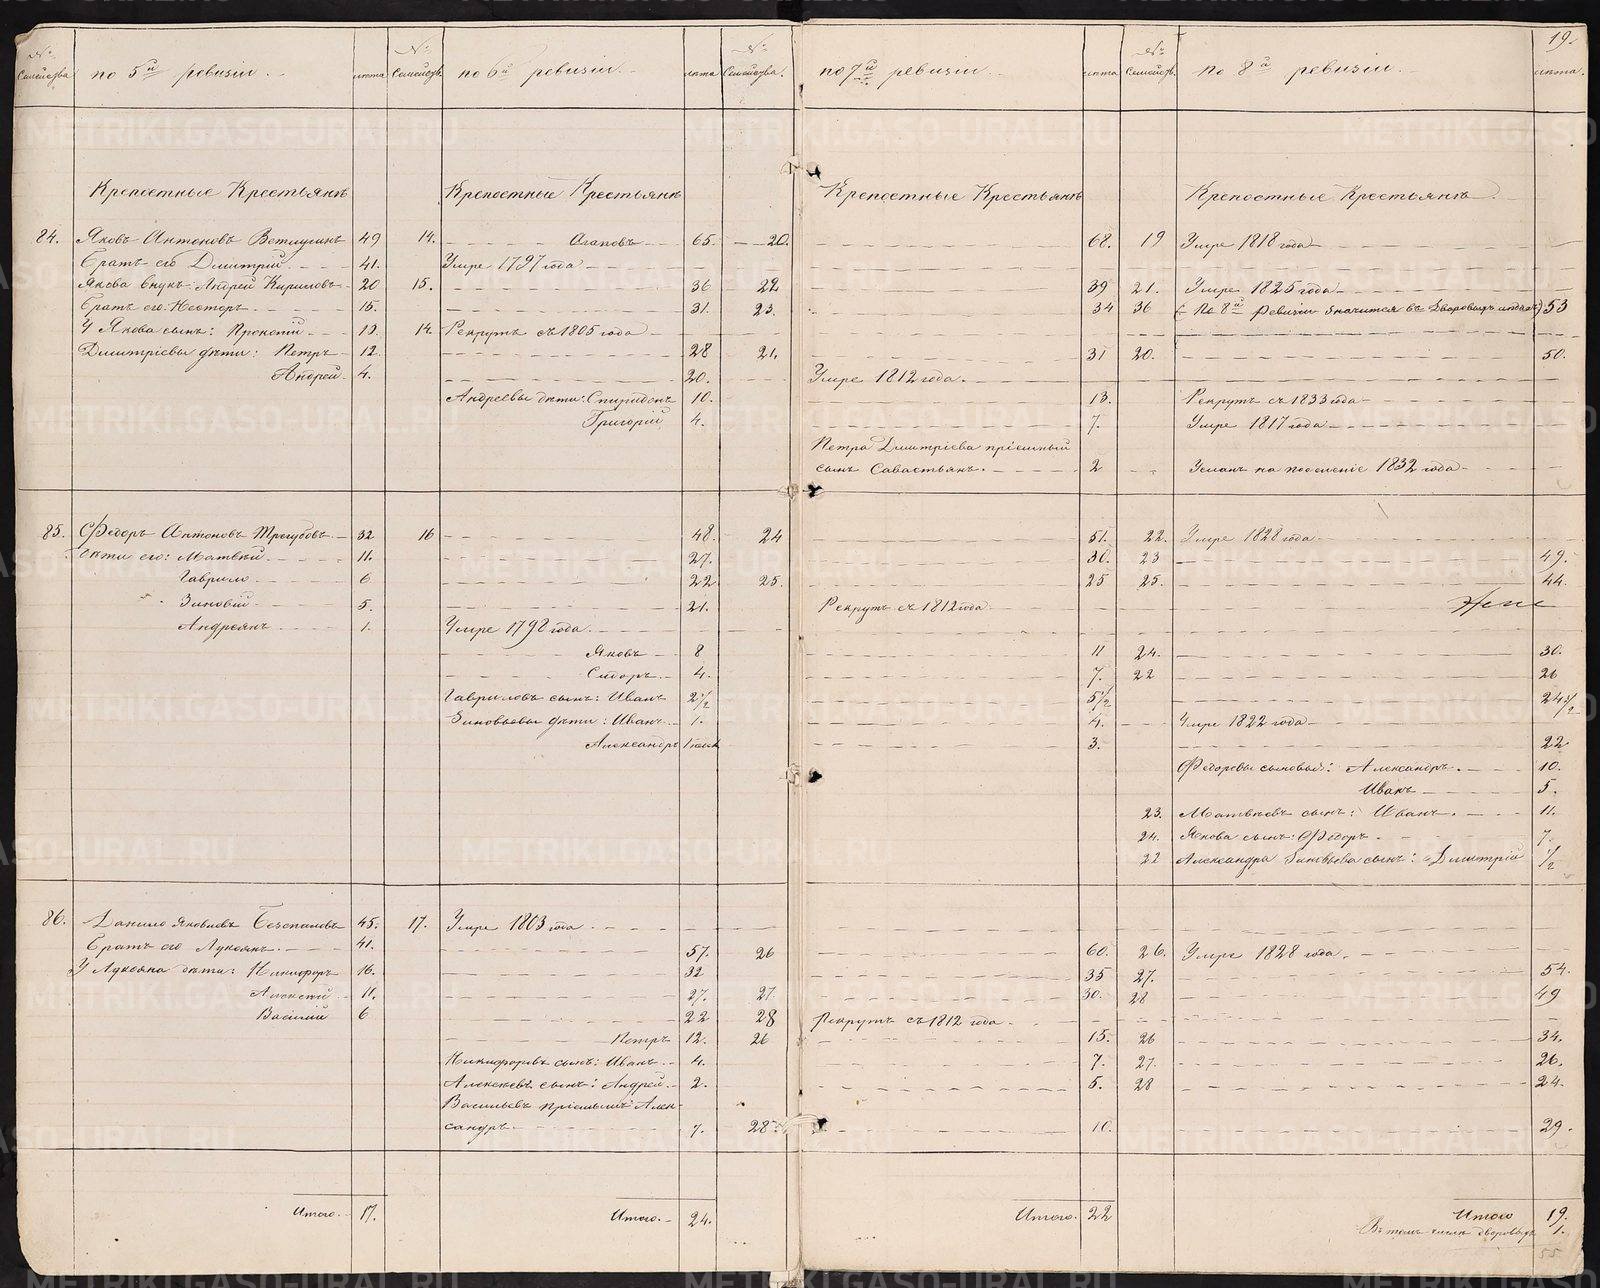 19.
№ Семейства по 5й ревизіи лѣта № Семейства по 6й ревизіи лѣта № Семейства по 7й ревизіи лѣта № Семейства по 8й ревизіи лѣта.
Крепостные Крестьянѣ Крепостные Крестьянѣ Крепостные Крестьянѣ Крепостные Крестьянѣ
84. Яковъ Антоновъ 49 14. 65. 20. 68. 19 Умре 1818 года
Братъ его Дмитрій 41. Умре 1797 года
Якова внукъ: Андрей Кириловъ 20 15. 36 22 39 21. Умре 1825 года
Братъ его Несторъ 15. 31. 23. 34 36 (По 8й Ревизіи значится въ Дворовыхъ людяхъ) 53
У Якова сынъ: 10. 14. Рекрутъ съ 1805 года
Дмитріевы дѣти: Петръ 12. 28 21. 31 20. 50.
Андрей 4. 20. Умре 1812 года.
Андреевы дѣти: Спиридонъ 10. 13. Рекрутъ съ 1833 года
Григорій 4. 7. Умре 1817 года
Петра Дмитріева пріемный
сынъ Савастьянъ. 2 на поселеніе 1832 года
85. Федоръ Антоновъ Трегубовъ 32 16 48. 24 51. 22. Умре 1828 года
дѣти его: Матвѣй 11. 27. 30. 23 49.
Гаврило 6 22 25. 25 25. 44.
Зиновій 5. 21. Рекрутъ съ 1812 года
Андреянъ 1. Умре 1798 года.
Яковъ 8 11 24. 30.
Сидоръ 4. 7. 22 26
Гавриловъ сынъ: Иванъ 2 1/2 5 1/2 24 1/2
Зиновьевы дѣти: Иванъ 1. 4. Умре 1822 года
Александръ 3. 22
Федоровы сыновья: Александръ. 10.
Иванъ 5.
23. Матвѣевъ сынъ: Иванъ. 11.
24. Якова сынъ: Федоръ 7.
22 Александра Зиновьева сынъ: Дмитрій 1/2
86. Данило Яковлевъ 45. 17. Умре 1803 года
Братъ его Лукоянъ. 41. 57. 26 60. 26. Умре 1828 года.
У Лукояна дѣти: Никифоръ 16. 32 35 27. 54.
Алексѣй 11. 27. 27 30. 28 49
Василій 6 22 28 Рекрутъ съ 1812 года.
Петръ 12. 26 15. 26 34.
Никифоровъ сынъ: Иванъ 4. 7. 27. 26.
Алексѣевъ сынъ: Андрей 2. 5. 28 24.
Васильевъ пріемышъ Алек-
сандръ 7. 28. 10. 29.
Итого. 17. Итого. 24. Итого. 22 Итого 19.
Въ томъ числѣ дворовыхъ 1.
METRIKI.GASO-URAL.RU